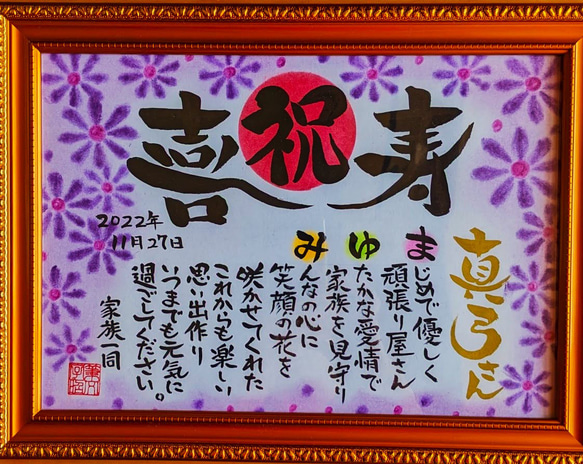 喜祝寿
2022年
11月27日
真弓さん
まじめで優しく
頑張り屋さん
ゆたかな愛情で
家族を見守り
みんなの心に
笑顔の花を
咲かせてくれた
これからも楽しい
思い出作り
いつまでも元気に
過ごしてください。
家族一同